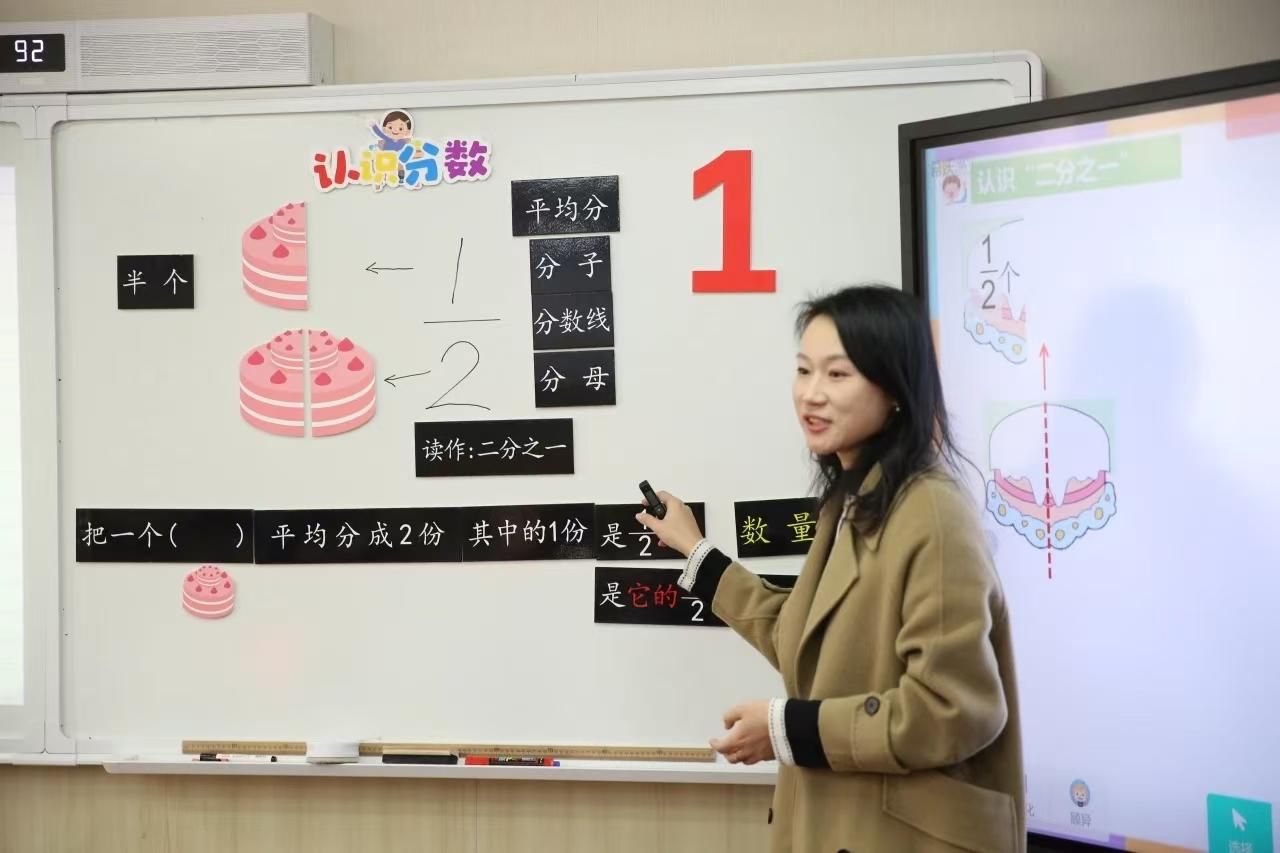 92
认识分数
1
平均分
半个
分子
1
分数线
2
分母
读作:二分之一
把一个( ) 平均分成2份 其中的1份 是 2
数量
是它的 2
认识“二分之一”
1
2
个
顾异
选择